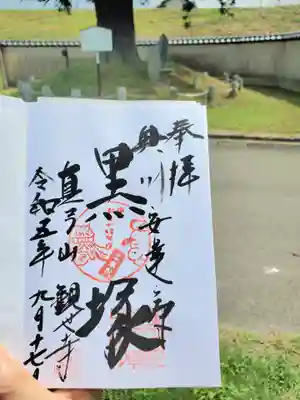 奉拝
奥州安達ヶ原
黒塚
真弓山 観世寺
令和五年 九月十七日